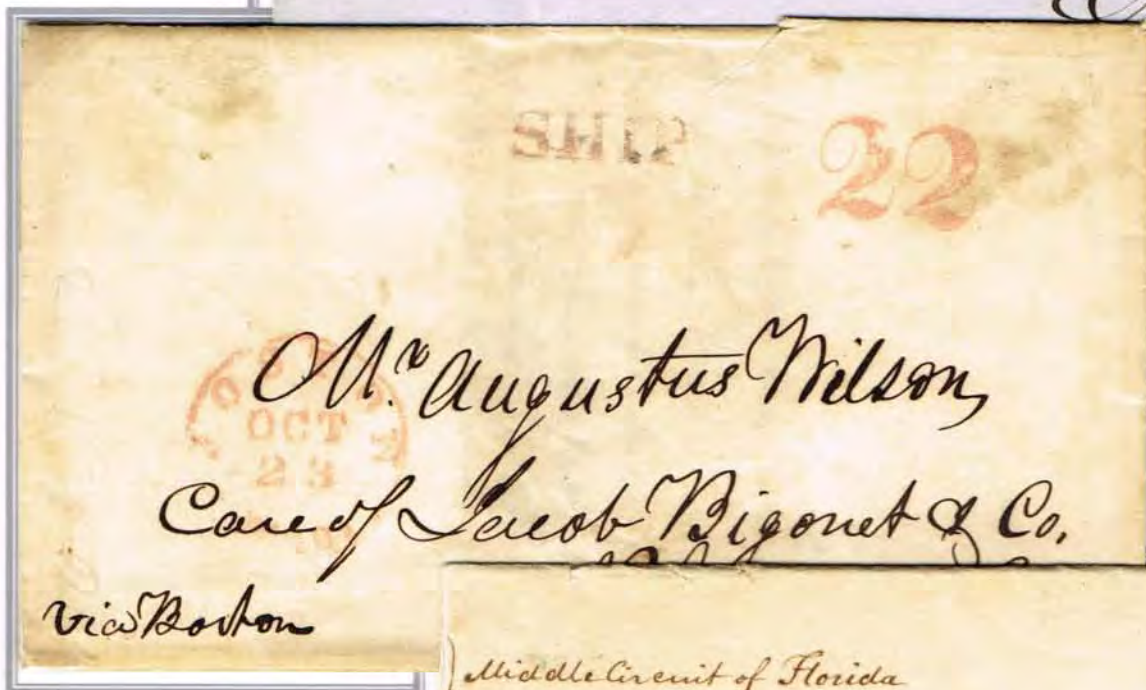 SHIP
22
OCT
23
Mr. Augustus Wilson,
Care of Jacob Bigonet & Co.
via Boston
Middle Circuit of Florida